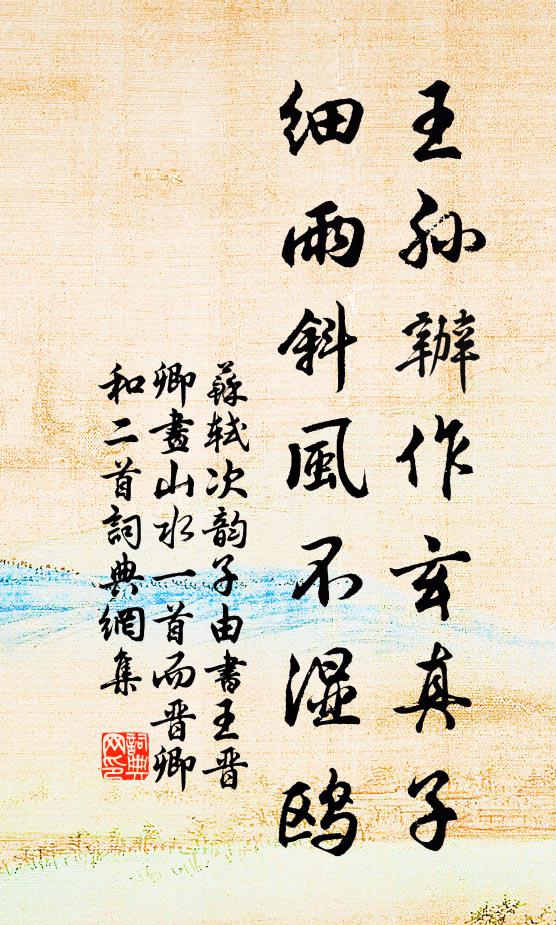 王孙辦作玄真子
细雨斜風不濕鸥
蘇軾次韵子由書王晋
卿畫山水一首而晋卿
和二首詞典網集
詞典
网印